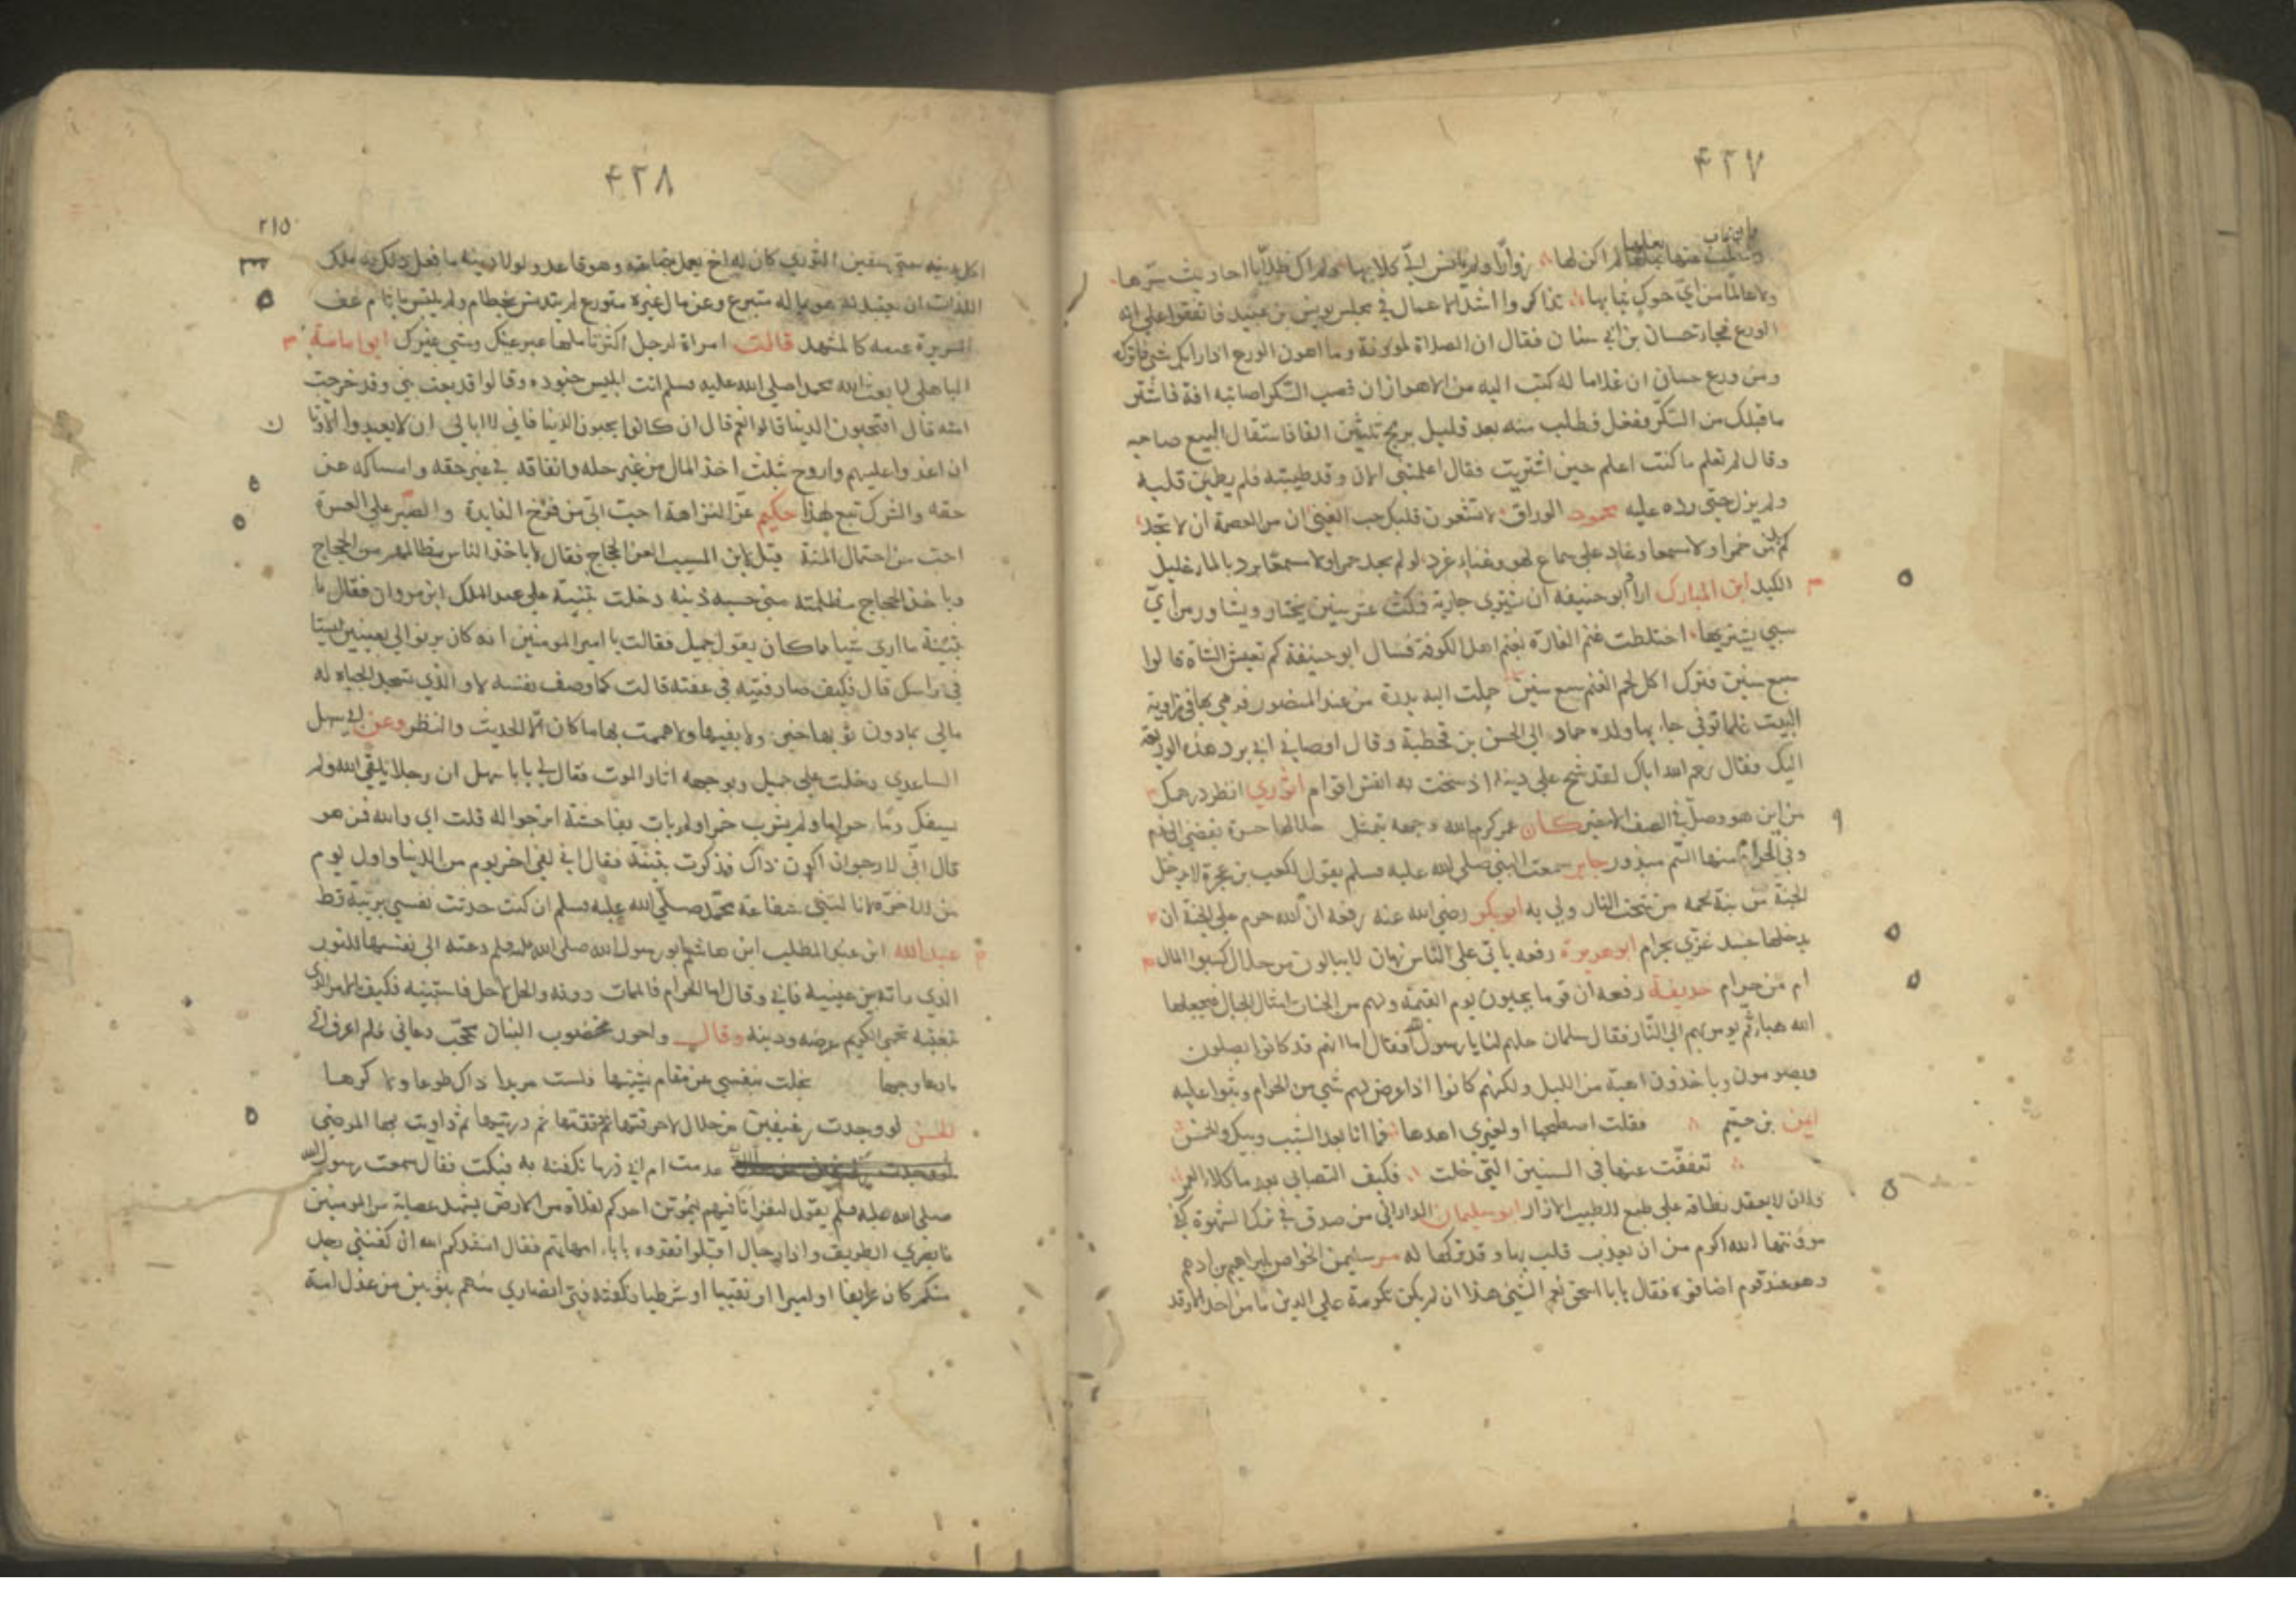 ٤٢٧
لم اكن لها زوّارا ولم يانس اليّ كلابها ولم اك طلابا احاديث سرها
ولا عالما من ايّ حوك ثيابها تذاكروا اشد الاعمال في مجلس يونس بن عبيد فاتفقوا على انه
الورع فجاء حسان بن ابي سنان فقال ان للصلاة لمؤونة وما اهون الورع اذا رابك شي فاتركه
ومن ورع حسان ان غلاما له كتب اليه من الاهواز ان قصب السّكر اصابته افة فاشتر
ما قبلك من السّكر ففعل فطلب منه بعد قليل بربح ثلثين الفا فاستقال البيع صاحبه
وقال لم تعلم ما كنت اعلم حين اشتريت فقال اعلمتني الان وقد طيبته فلم يطمئن قلبه
ولم يزل حتى رده عليه محمود الوراق لا تشعرن قلبك حب الغنى ان من العصمة ان لا تجد
كم من خمرا ولا مسمعا وغاد على سماع لهو وغناء غرد لو لم يجد خمرا ولا مسمعا برد بالماء غليل
الكبد ابن المبارك اراد ابو حنيفه ان يشتري جارية فمكث عشر سنين يختار ويشاور من ايّ
سبي يشتريها اختلطت غنم الغارة بغنم اهل الكوفة فسال ابو حنيفة كم تعيش الشاة قالوا
سبع سنين فترك اكل لحم الغنم سبع سنين حملت اليه بدرة من عند المنصور فرمى بها في زاوية
البيت فلما توفي جاء بها ولده حماد الى الحسن بن قحطبة وقال اوصاني ابي برد هذه الوديعة
اليك فقال رحم الله اباك لقد شح على دينه اذ سخت به انفس اقوام الثوري انظر درهمك
من اين هو وصلّ في الصف الاخير كان عمر كرم الله وجهه يتمثل حلالها حسرة تفضي الى ندم
وفي الحرام منها السّم مبذور جابر سمعت النبي صلى الله عليه وسلم يقول لكعب بن عجرة لا يدخل
الجنة من نبت لحمه من سحت النار اولى به ابو بكر رضي الله عنه رفعه ان الله حرم على الجنة ان
يدخلها جسد غذي بحرام ابو هريرة رفعه ياتي على الناس زمان لا يبالون من حلال كسبوا المال
ام من حرام حذيفة رفعه ان قوما يجيئون يوم القيمة ولهم من الحسنات امثال الجبال فيجعلها
الله هباء ثم يؤمر بهم الى النار فقال سلمان حلهم لنا يا رسول الله فقال اما انهم قد كانوا يصلون
ويصومون وياخذون اهبة من الليل ولكنهم كانوا اذا عرض لهم شي من الحرام وثبوا عليه
ايمن بن خريم فقلت اصطبحها او لغيري اهدها فما انا بعد الشيب ويبك والخمر
تعففت عنها في السنين التي خلت فكيف التصابي بعد ما كلا العمر
فلان لا يعقد نطاقه على طبع للطيب الازار ابو سليمان الداراني من صدق في ترك الشهوة كفي
مؤنتها الله اكرم من ان يعذب قلب بها وقد تركها له سليمن الخواص ابراهيم بن ادهم
وهو عند قوم اضافوه فقال يا ابا اسحق نعم الشي هذا ان لم يكن تكرمة على الدين ما من احد الا وقد
٤٢٨
٢١٥
اكل بدينه حتى سفين الثوري كان له اخ يعمل بضاعته وهو قاعد ولولا دينه ما فعل ذلك به ملك
اللذات ان تعبد له هو بماله متبرع وعن مال غيره متورع لم يتدنس بحطام ولم يلتبس باثام عف
السريرة غيبه كالمشهد قالت امراة لرجل اكثر تاملها غير عينك وبشي غيرك ابو امامة
الباهلي لما بعث الله محمدا صلى الله عليه وسلم اتت ابليس جنوده وقالوا قد بعث نبي وقد خرجت
امته قال افيحبون الدنيا قالوا نعم قال ان كانوا يحبون الدنيا فاني لا ابالي ان لا يعبدوا الاوثان
ان اغدو اعليهم واروح بثلث اخذ المال من غير حله وانفاقه في غير حقه وامساكه عن
حقه والشرك تبع لهذا حكيم عزّ النزاهة احب اليّ من فرح الفايدة والصبر على العسرة
احب من احتمال المنة قيل لابن المسيب العن الحجاج فقال لا ياخذ الناس بمظالمهم من الحجاج
وياخذ الحجاج مظلمته مني حسبه ذنبه دخلت بثينة على عبد الملك ابن مروان فقال ما
بثينة ما ارى شيا مما كان يقول جميل فقالت يا امير المومنين انه كان يرنو الي بعينين ليستا
في راسك قال فكيف صادفتيه في عفته قالت كما وصف نفسه لا والذي تسجد الجباه له
مالي بما دون ثوبها خبر ولا بفيها ولا هممت بها ما كان الّا الحديث والنظر وعن ابي سهل
الساعدي دخلت على جميل وبوجهه اثار الموت فقال لي يا ابا سهل ان رجلا يلقى الله ولم
يسفك دما حراما ولم يشرب خمرا ولم يات بفاحشة اترجوا له قلت اي والله فمن هو
قال اني لارجو ان اكون ذاك فذكرت بثينة فقال اني لفي اخر يوم من الدنيا واول يوم
من الاخرة لا نالتني شفاعة محمّد صلّى الله عليه وسلم ان كنت حدثت نفسي بريبة قط
عبد الله ابن عبد المطلب ابن هاشم ابو رسول الله صلى الله عليه وسلم دعته الى نفسها للنور
الذي راته بين عينيه فابى وقال اما الحرام فالممات دونه والحل لا حل فاستبينه فكيف بالامر الذي
تبغينه يحمي الكريم عرضه ودينه وقال واحور مخضوب البنان محجّب دعاني فلم اعرف الى
ما دعا وجها بخلت بنفسي عن مقام يشينها فلست مريدا ذاك طوعا ولا كرها
الحسن لو وجدت رغيفين من حلال لاحرقتهما ثم دققتهما ثم ذريتهما ثم داويت بهما المرضى
عدمت ام ابي ذر ما تكفنه به فبكت فقال سمعت رسول الله
صلى الله عليه وسلم يقول لنفر انا فيهم ليموتن احدكم بفلاة من الارض يشهد عصابة من المومنين
فابصري الطريق واذا رجال اقبلوا تفدوه بابا امهاتهم فقال انشدكم الله ان كفنني رجل
منكم كان عريفا او اميرا او نقيبا او شرطيا فكفنه فتى انصاري منهم بثوبين من غزل امه